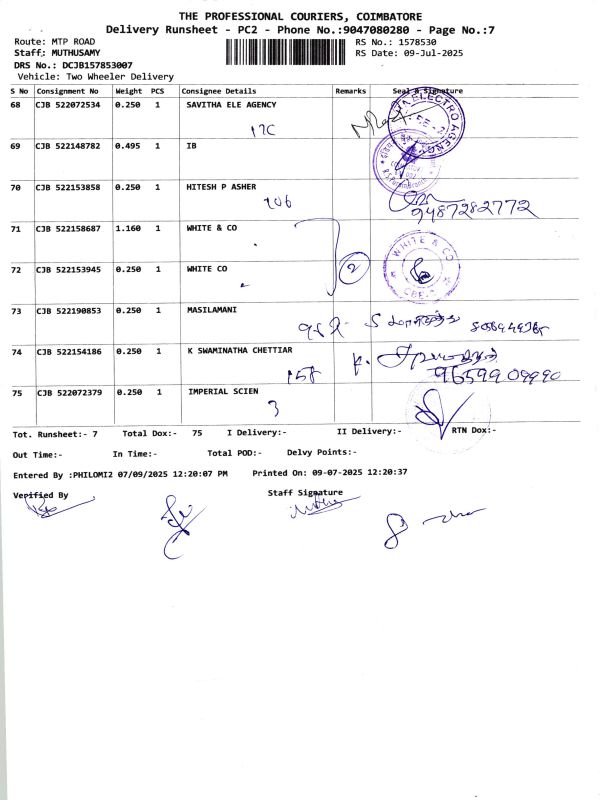 THE PROFESSIONAL COURIERS, COIMBATORE
Delivery Runsheet - PC2 - Phone No.:9047080280 - Page No.:7
Route: MTP ROAD RS No.: 1578530
Staff: MUTHUSAMY RS Date: 09-Jul-2025
DRS No.: DCJB157853007
Vehicle: Two Wheeler Delivery
S No Consignment No Weight PCS Consignee Details Remarks Seal & Signature
68 CJB 522072534 0.250 1 SAVITHA ELE AGENCY
17C
69 CJB 522148782 0.495 1 IB
70 CJB 522153858 0.250 1 HITESH P ASHER
206
9487282772
71 CJB 522158687 1.160 1 WHITE & CO
WHITE & CO
2
72 CJB 522153945 0.250 1 WHITE CO
CBE-2
73 CJB 522190853 0.250 1 MASILAMANI
74 CJB 522154186 0.250 1 K SWAMINATHA CHETTIAR
158
9659909990
75 CJB 522072379 0.250 1 IMPERIAL SCIEN
3
Tot. Runsheet:- 7 Total Dox:- 75 I Delivery:- II Delivery:- RTN Dox:-
Out Time:- In Time:- Total POD:- Delvy Points:-
Entered By :PHILOMI2 07/09/2025 12:20:07 PM Printed On: 09-07-2025 12:20:37
Verified By Staff Signature